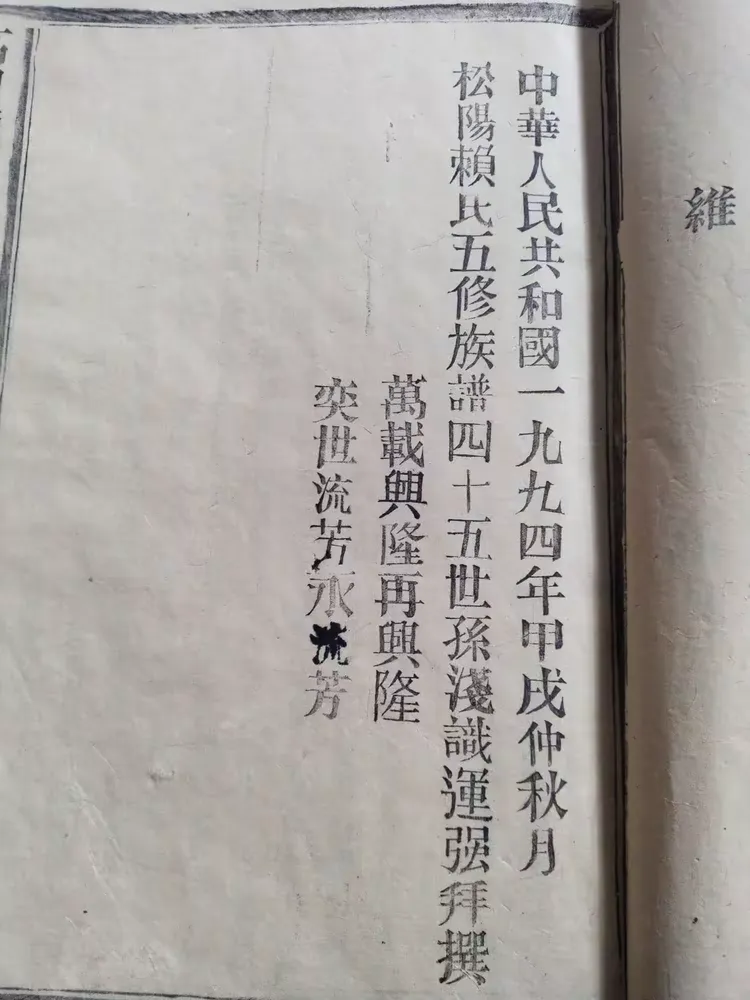 維
中華人民共和國一九九四年甲戌仲秋月
松陽賴氏五修族譜四十五世孫淺識運强拜撰
萬載興隆再興隆
奕世流芳永流芳